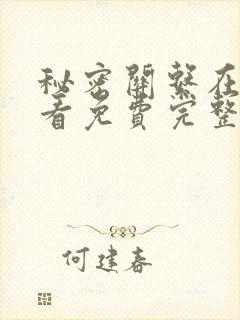 秘密關繫在
看免費完整
何建春